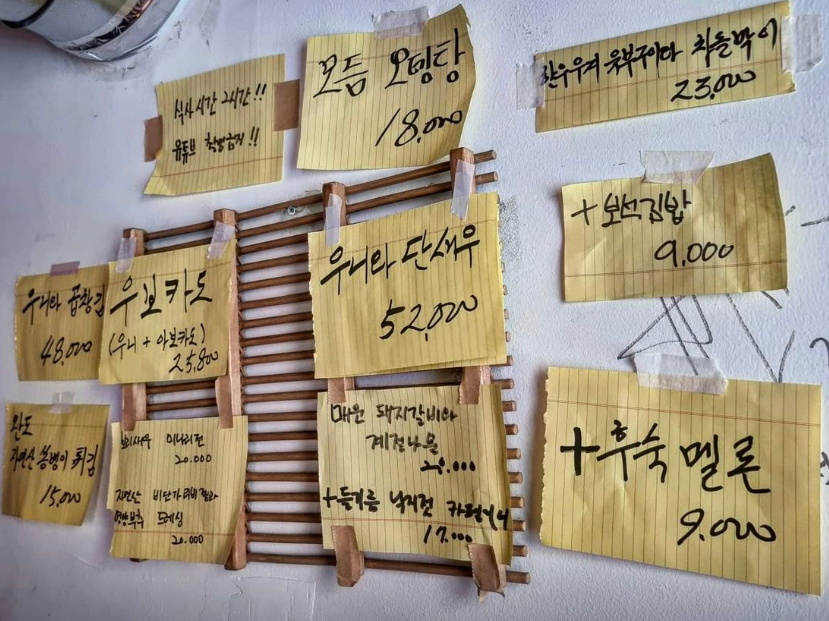 식사시간 2시간!!
유튜브 촬영금지!!
모듬 오뎅탕
18,000
차돌박이
23,000
+ 보석김밥
9,000
우니와 곱창김
48,000
우보카도
(우니 + 아보카도)
25,800
우니와 단새우
52,000
완도
자연산 튀김
15,000
보리새우 미나리전
20.000
자연산 비단가리비
영양부추 드레싱
20.000
매운 돼지갈비와
계절나물
20.000
+ 들기름 낙지젓 카펠리니
17.000
+ 후숙 멜론
9.000